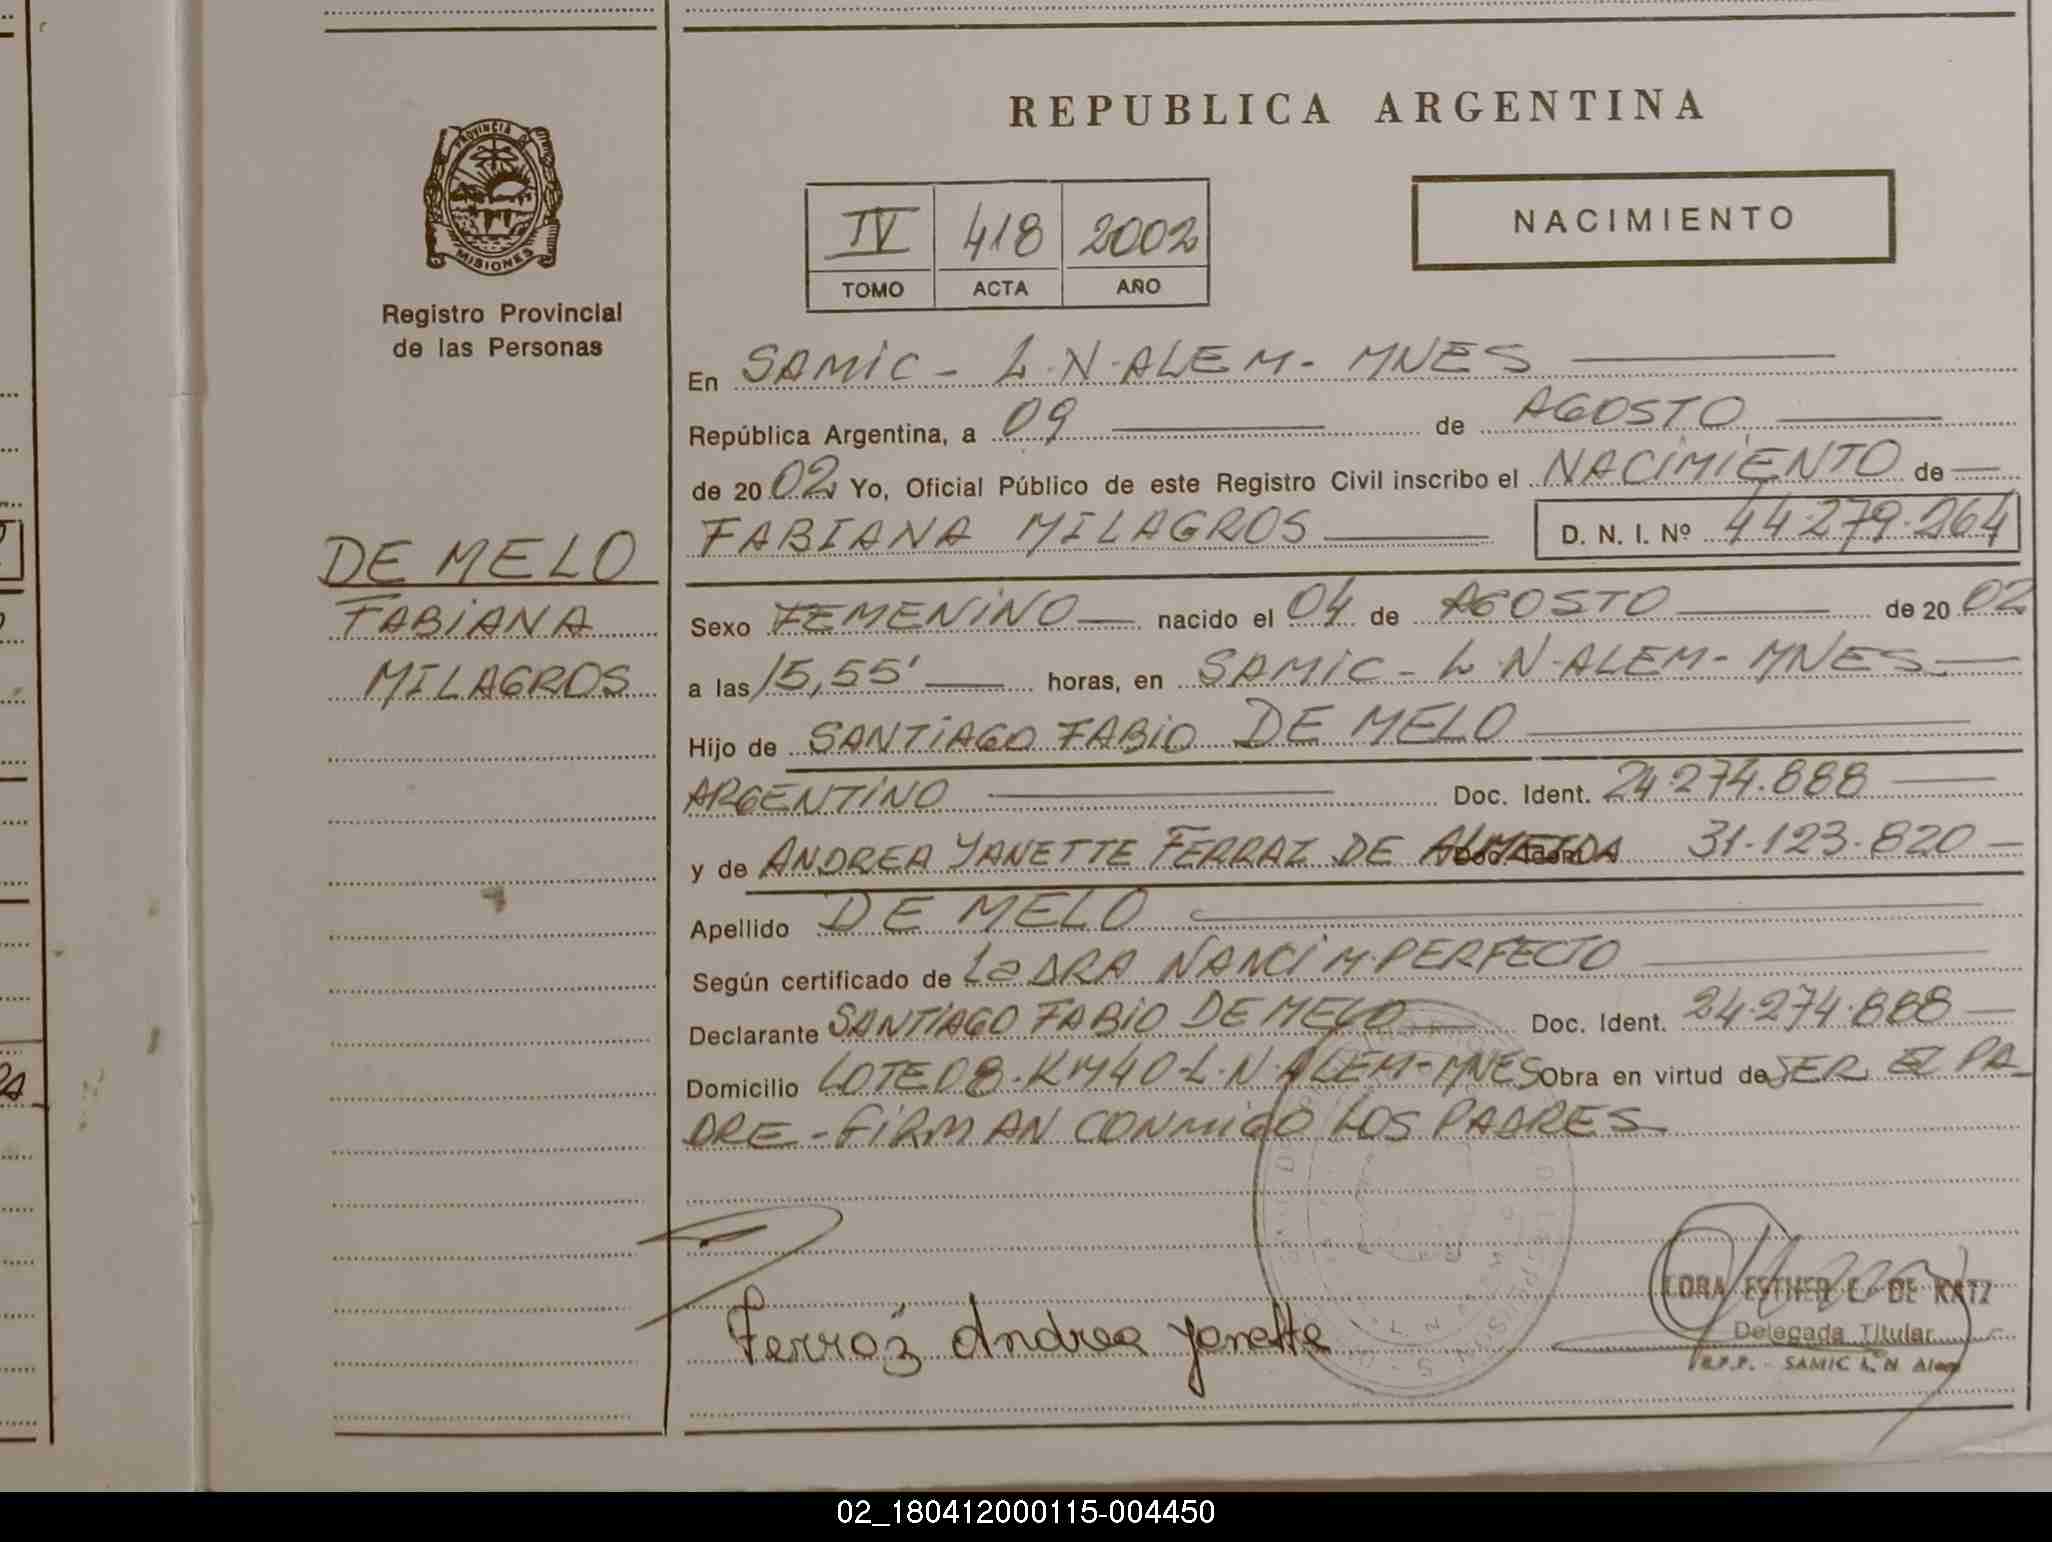 REPUBLICA ARGENTINA
PROVINCIA DE
MISIONES
Registro Provincial
de las Personas
IV 418 2002
TOMO ACTA AÑO
NACIMIENTO
En SAMIC - L.N.ALEM - MNES
República Argentina, a 09 de AGOSTO
de 2002 Yo, Oficial Público de este Registro Civil inscribo el NACIMIENTO de
FABIANA MILAGROS D. N. I. Nº 44.279.264
DE MELO
FABIANA
MILAGROS
Sexo FEMENINO nacido el 04 de AGOSTO de 2002
a las 15,55' horas, en SAMIC - L.N.ALEM - MNES
Hijo de SANTIAGO FABIO DE MELO
ARGENTINO Doc. Ident. 24.274.888
y de ANDREA YANETTE FERRAZ DE ALMEIDA Doc. Ident. 31.123.820
Apellido DE MELO
Según certificado de NANCI M. PERFECTO
Declarante SANTIAGO FABIO DE MELO Doc. Ident. 24.274.888
Domicilio LOTE 08 - KM 40 - L.N.ALEM - MNES Obra en virtud de SER EL PA
DRE - FIRMAN CONMIGO LOS PADRES
Ferraz Andrea Yanette
ESTHER E. DE KATZ
Delegada Titular
R.P.P. - SAMIC L. N Alem
02_180412000115-004450